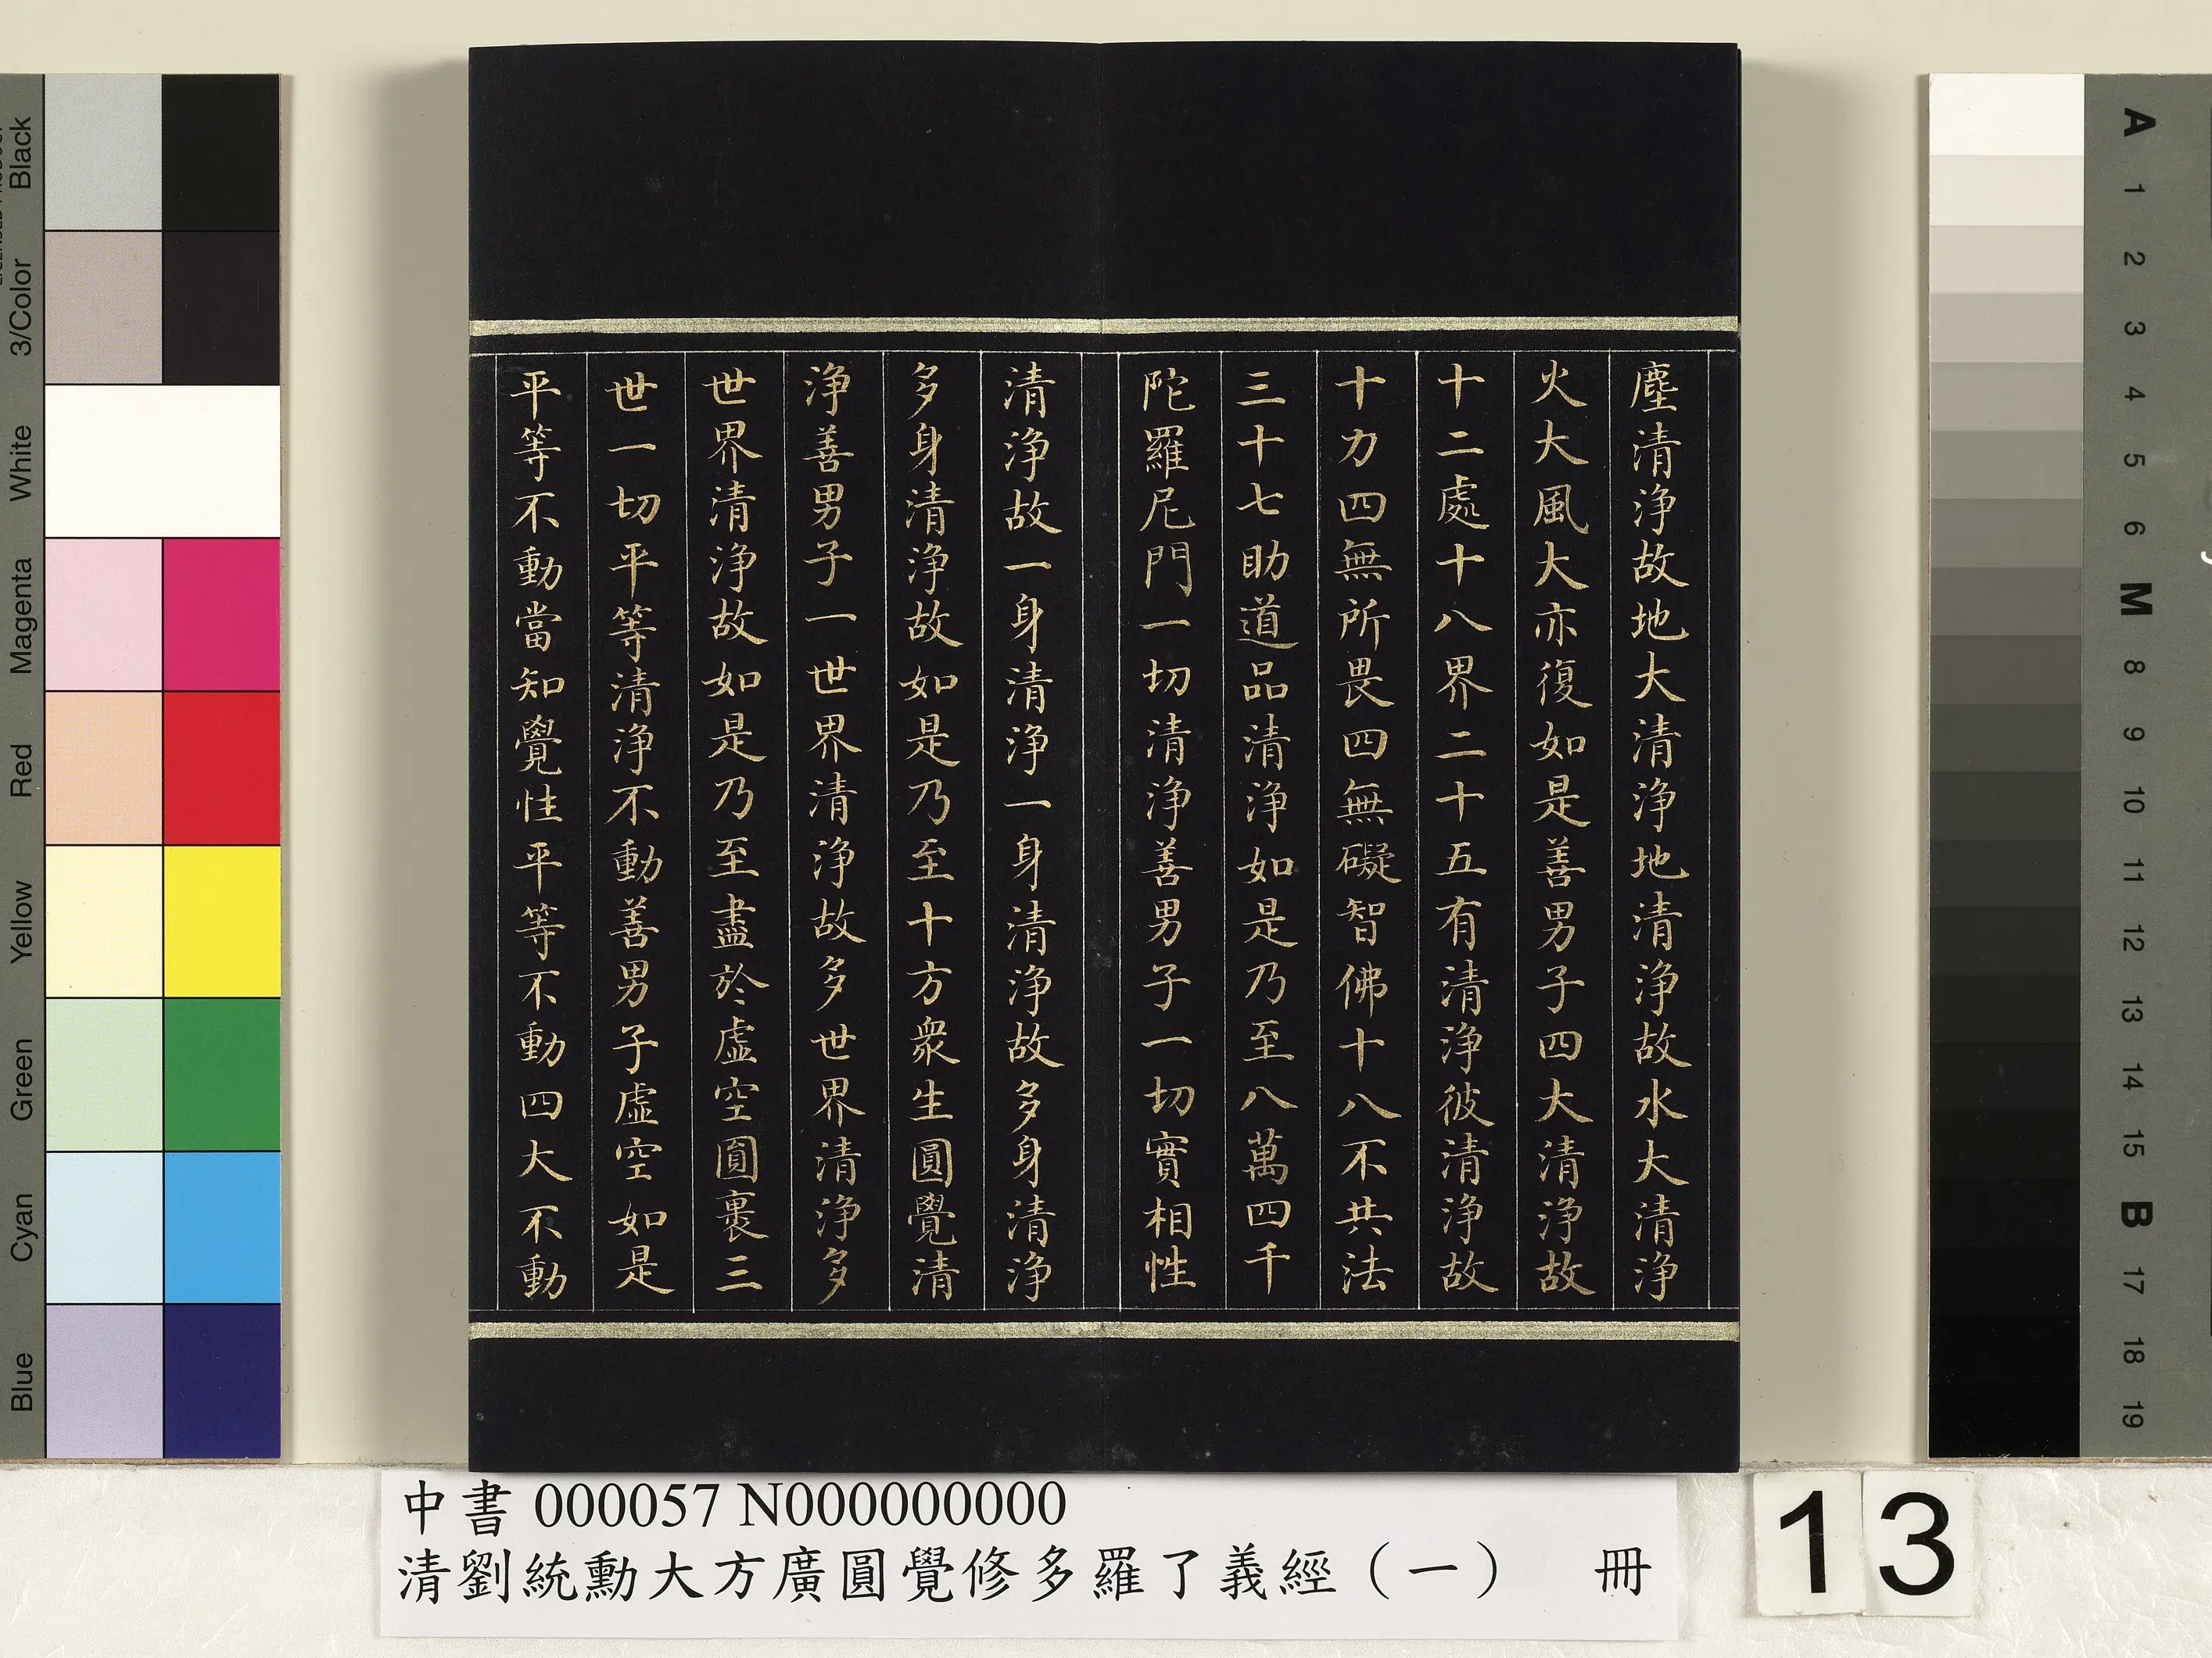 塵清淨故地大清淨地清淨故水大清淨
火大風大亦復如是善男子四大清淨故
十二處十八界二十五有清淨彼清淨故
十力四無所畏四無礙智佛十八不共法
三十七助道品清淨如是乃至八萬四千
陀羅尼門一切清淨善男子一切實相性
清淨故一身清淨一身清淨故多身清淨
多身清淨故如是乃至十方衆生圓覺清
淨善男子一世界清淨故多世界清淨多
世界清淨故如是乃至盡於虛空圓裹三
世一切平等清淨不動善男子虛空如是
平等不動當知覺性平等不動四大不動
中書 000057 N000000000
清劉統勳大方廣圓覺修多羅了義經（一） 冊
13
Black
3/Color
White
Magenta
Red
Yellow
Green
Cyan
Blue
A
1
2
3
4
5
6
M
8
9
10
11
12
13
14
15
B
17
18
19